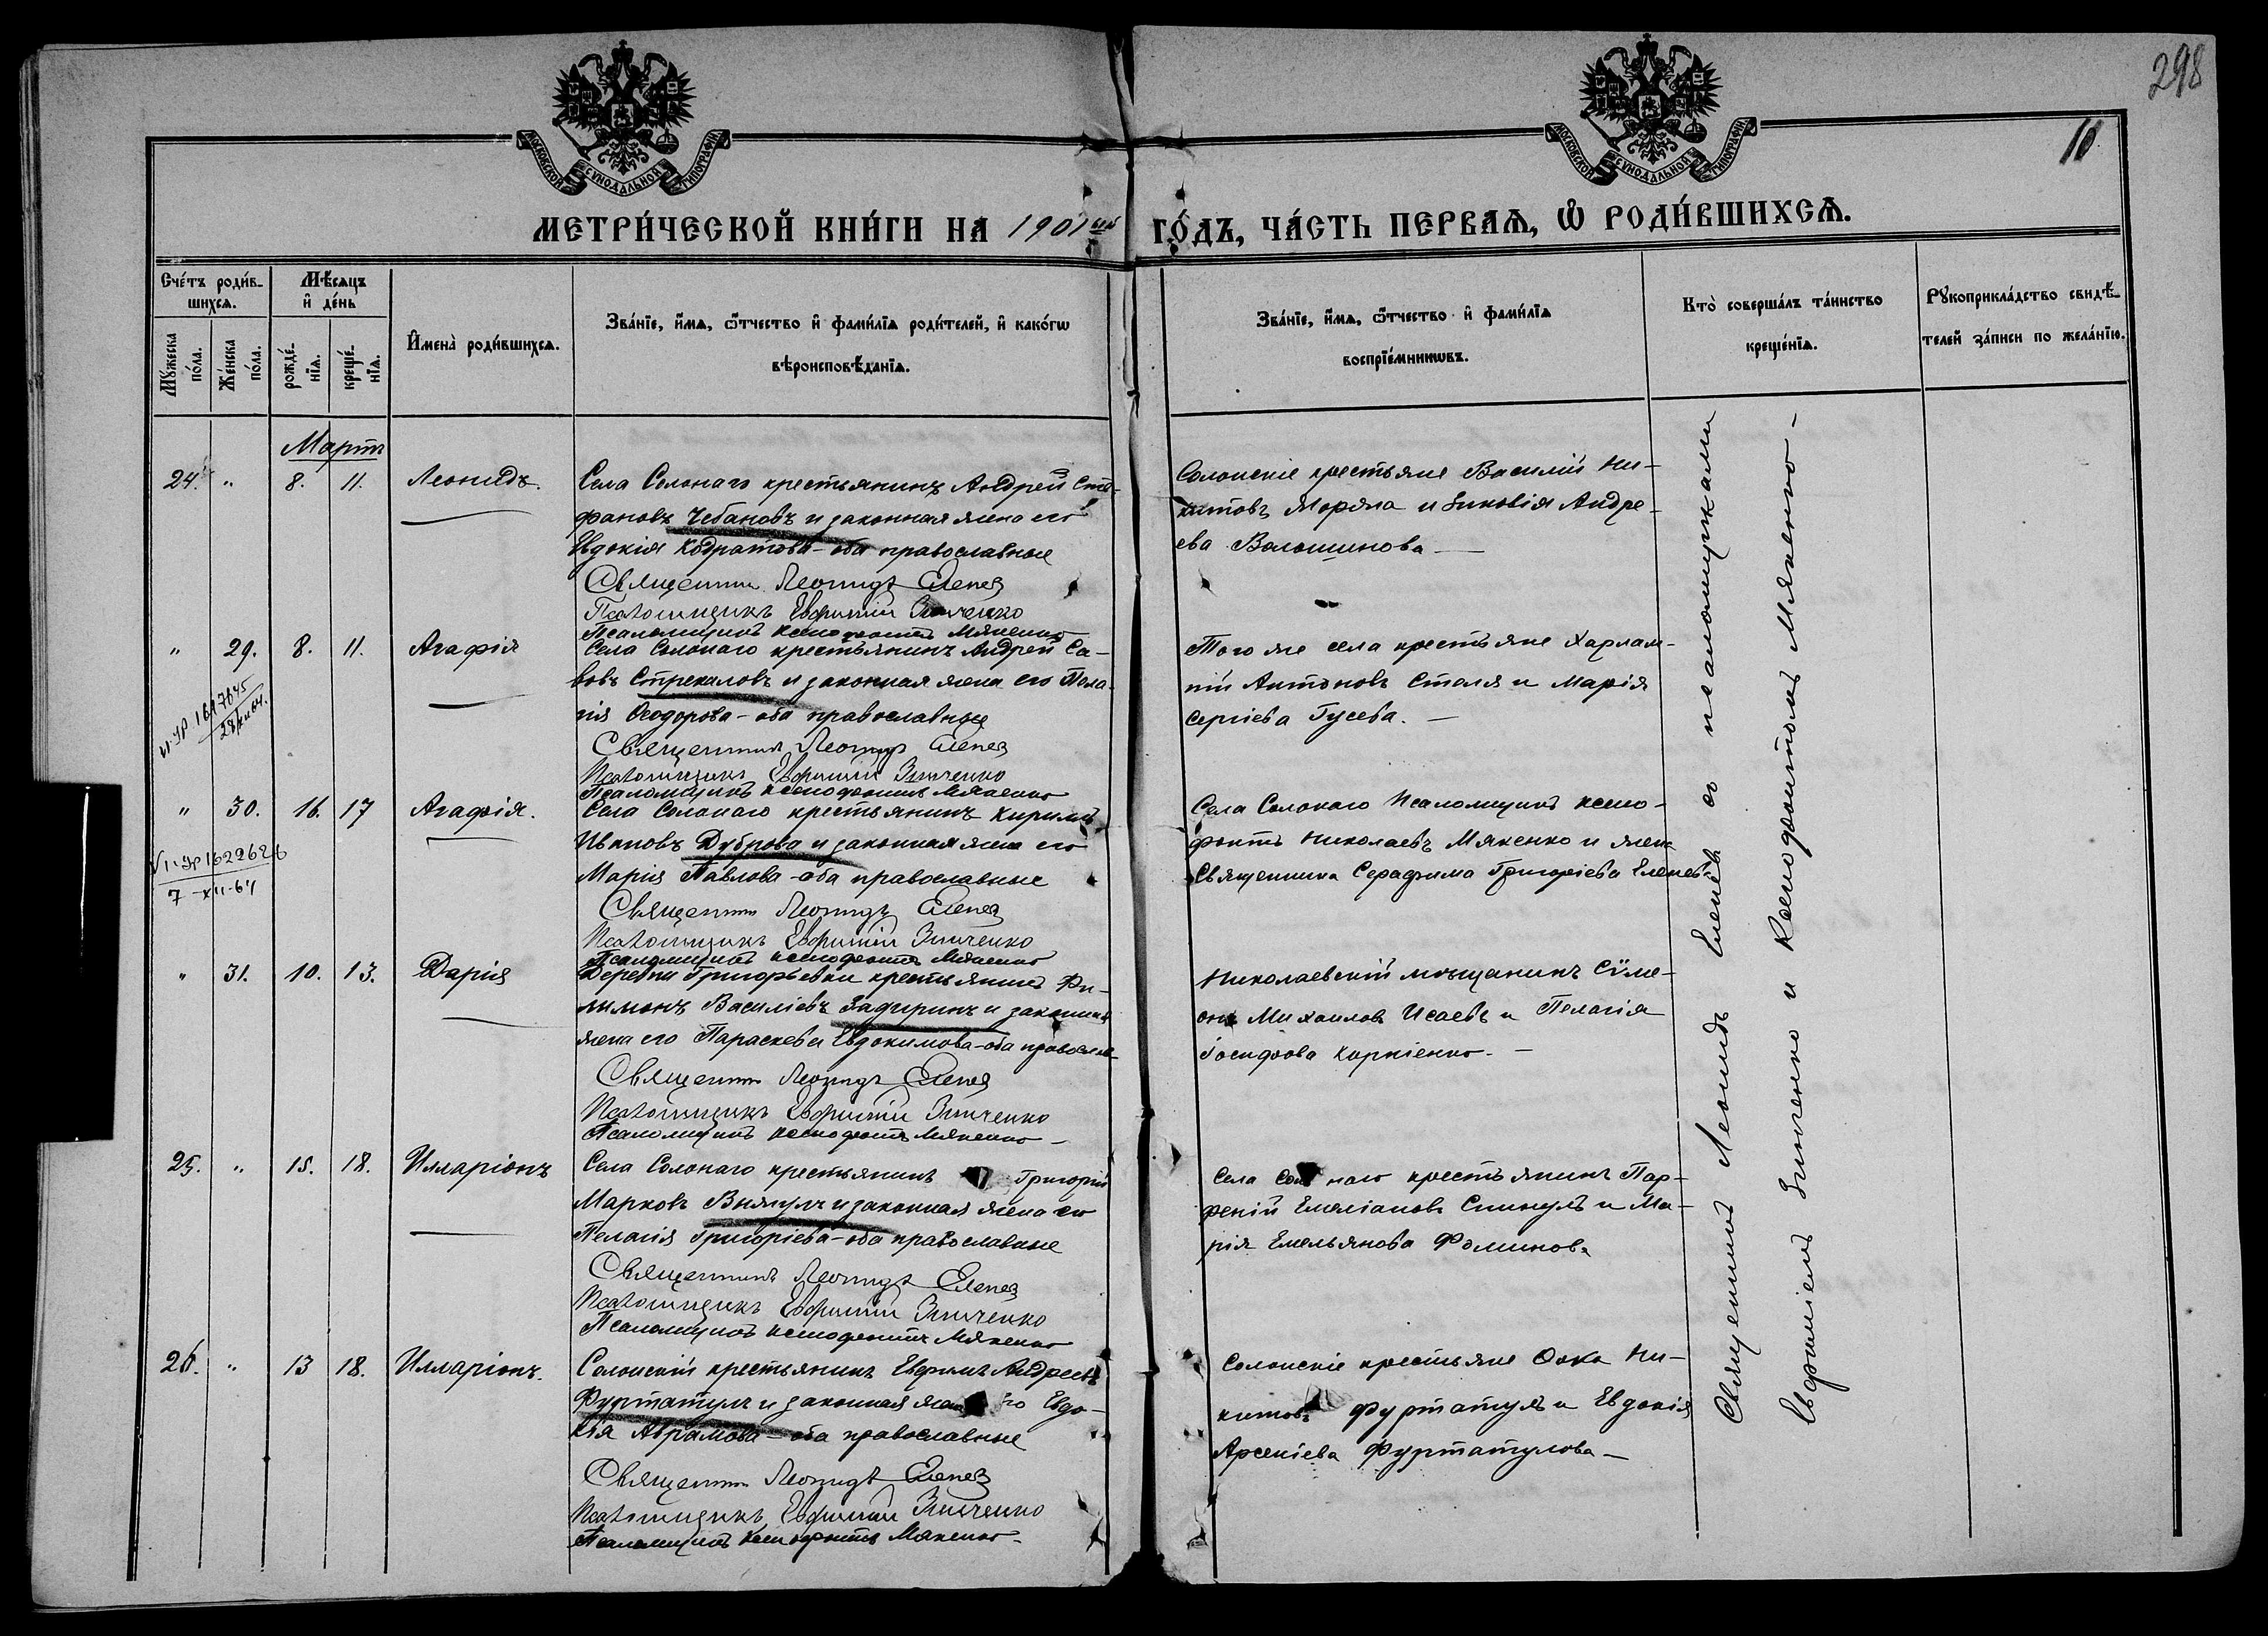 298
10
МОСКОВСКОЙ СѴНОДАЛЬНОЙ ТИПОГРАФІИ
МОСКОВСКОЙ СѴНОДАЛЬНОЙ ТИПОГРАФІИ
МЕТРИ́ЧЕСКОЙ КНИ́ГИ НА 1901ый ГО́ДЪ, ЧА́СТЬ ПЕРВАѦ, Ѡ҆ РОДИ́ВШИХСѦ.
Сче́тъ роди́в-
шихсѧ.
Мꙋ́жеска по́ла.
Же́нска по́ла.
Мѣ́сѧцъ
и҆ де́нь
рожде́-нїѧ.
креще́-нїѧ.
И҆мена̀ роди́вшихсѧ.
Зва́нїе, и҆́мѧ, ѻ҆́тчество и҆ фами́лїѧ роди́телей, и҆ како́гѡ
вѣроисповѣ́данїѧ.
Зва́нїе, и҆́мѧ, ѻ҆́тчество и҆ фами́лїѧ
воспрїе́мникѡвъ.
Кто̀ соверша́лъ та́инство
креще́нїѧ.
Рꙋкоприкла́дство свидѣ́-
телей за́писи по жела́нїю.
Мартъ
24. " 8. 11. Леонидъ.
Села Солонаго крестьянинъ Андрей Сте-
фановъ Чебановъ и законная жена его
Евдокія Кодратова - оба православные
Священник Леонид Еленев
Псаломщикъ Евфимій Зинченко
Псаломщикъ Ксенофонтъ Мякенко
Солонскіе крестьяне Василій Ни-
китовъ Моряна и Зиновія Андре-
ева Волошинова —
" 29. 8. 11. Агафія
Села Солонаго крестьянинъ Андрей Са-
вовъ Стрекаловъ и законная жена его Пела-
гія Ѳеодорова - оба православные
Священник Леонид Еленев
Псаломщикъ Евфимій Зинченко
Псаломщикъ Ксенофонтъ Мякенко
Того же села крестьяне Харлам-
пій Антоновъ Сталя и Марія
Сергіева Гусева. —
" 30. 16. 17 Агафія.
1629626
7-XII-64
Села Солонаго крестьянинъ Кирилъ
Ивановъ Дуброва и законная жена его
Марія Павлова - оба православные
Священник Леонид Еленев
Псаломщикъ Евфимій Зинченко
Псаломщикъ Ксенофонтъ Мякенко
Села Солонаго Псаломщикъ Ксено-
фонтъ Николаевъ Мякенко и жена
Священника Серафима Григоріева Еленева
" 31. 10. 13. Дарія
Деревни Григорьевки крестьянинъ Фи-
лимонъ Василіевъ Задиринъ и законная
жена его Параскева Евдокимова - оба православ-
Священник Леонид Еленев
Псаломщикъ Евфимій Зинченко
Псаломщикъ Ксенофонтъ Мякенко —
Николаевскій мѣщанинъ Сѵме-
онъ Михаиловъ Исаевъ и Пелагія
Іосифова Корніенко. —
25. " 15. 18. Илларіонъ
Села Солонаго крестьянинъ Григорій
Марковъ и законная жена его
Пелагія Григоріева - оба православные
Священникъ Леонид Еленев
Псаломщикъ Евфимій Зинченко
Псаломщикъ Ксенофонтъ Мякенко
Села Солонаго крестьянинъ Пар-
феній Емеліановъ и Ма-
рія Емельянова Фоминова
26. " 13 18. Илларіонъ.
Солонскій крестьянинъ Ефимъ Андреевъ
Фуртатулъ и законная жена его Евдо-
кія Абрамова - оба православные
Священник Леонид Еленев
Псаломщикъ Евфимій Зинченко
Псаломщикъ Ксенофонтъ Мякенко -
Солонскіе крестьяне Ѳока Ни-
китовъ Фуртатулъ и Евдокія
Арсеніева Фуртатулова —
Священникъ Леонидъ Еленевъ съ псаломщиками
Евфиміемъ Зинченко и Ксенофонтомъ Мякенко -